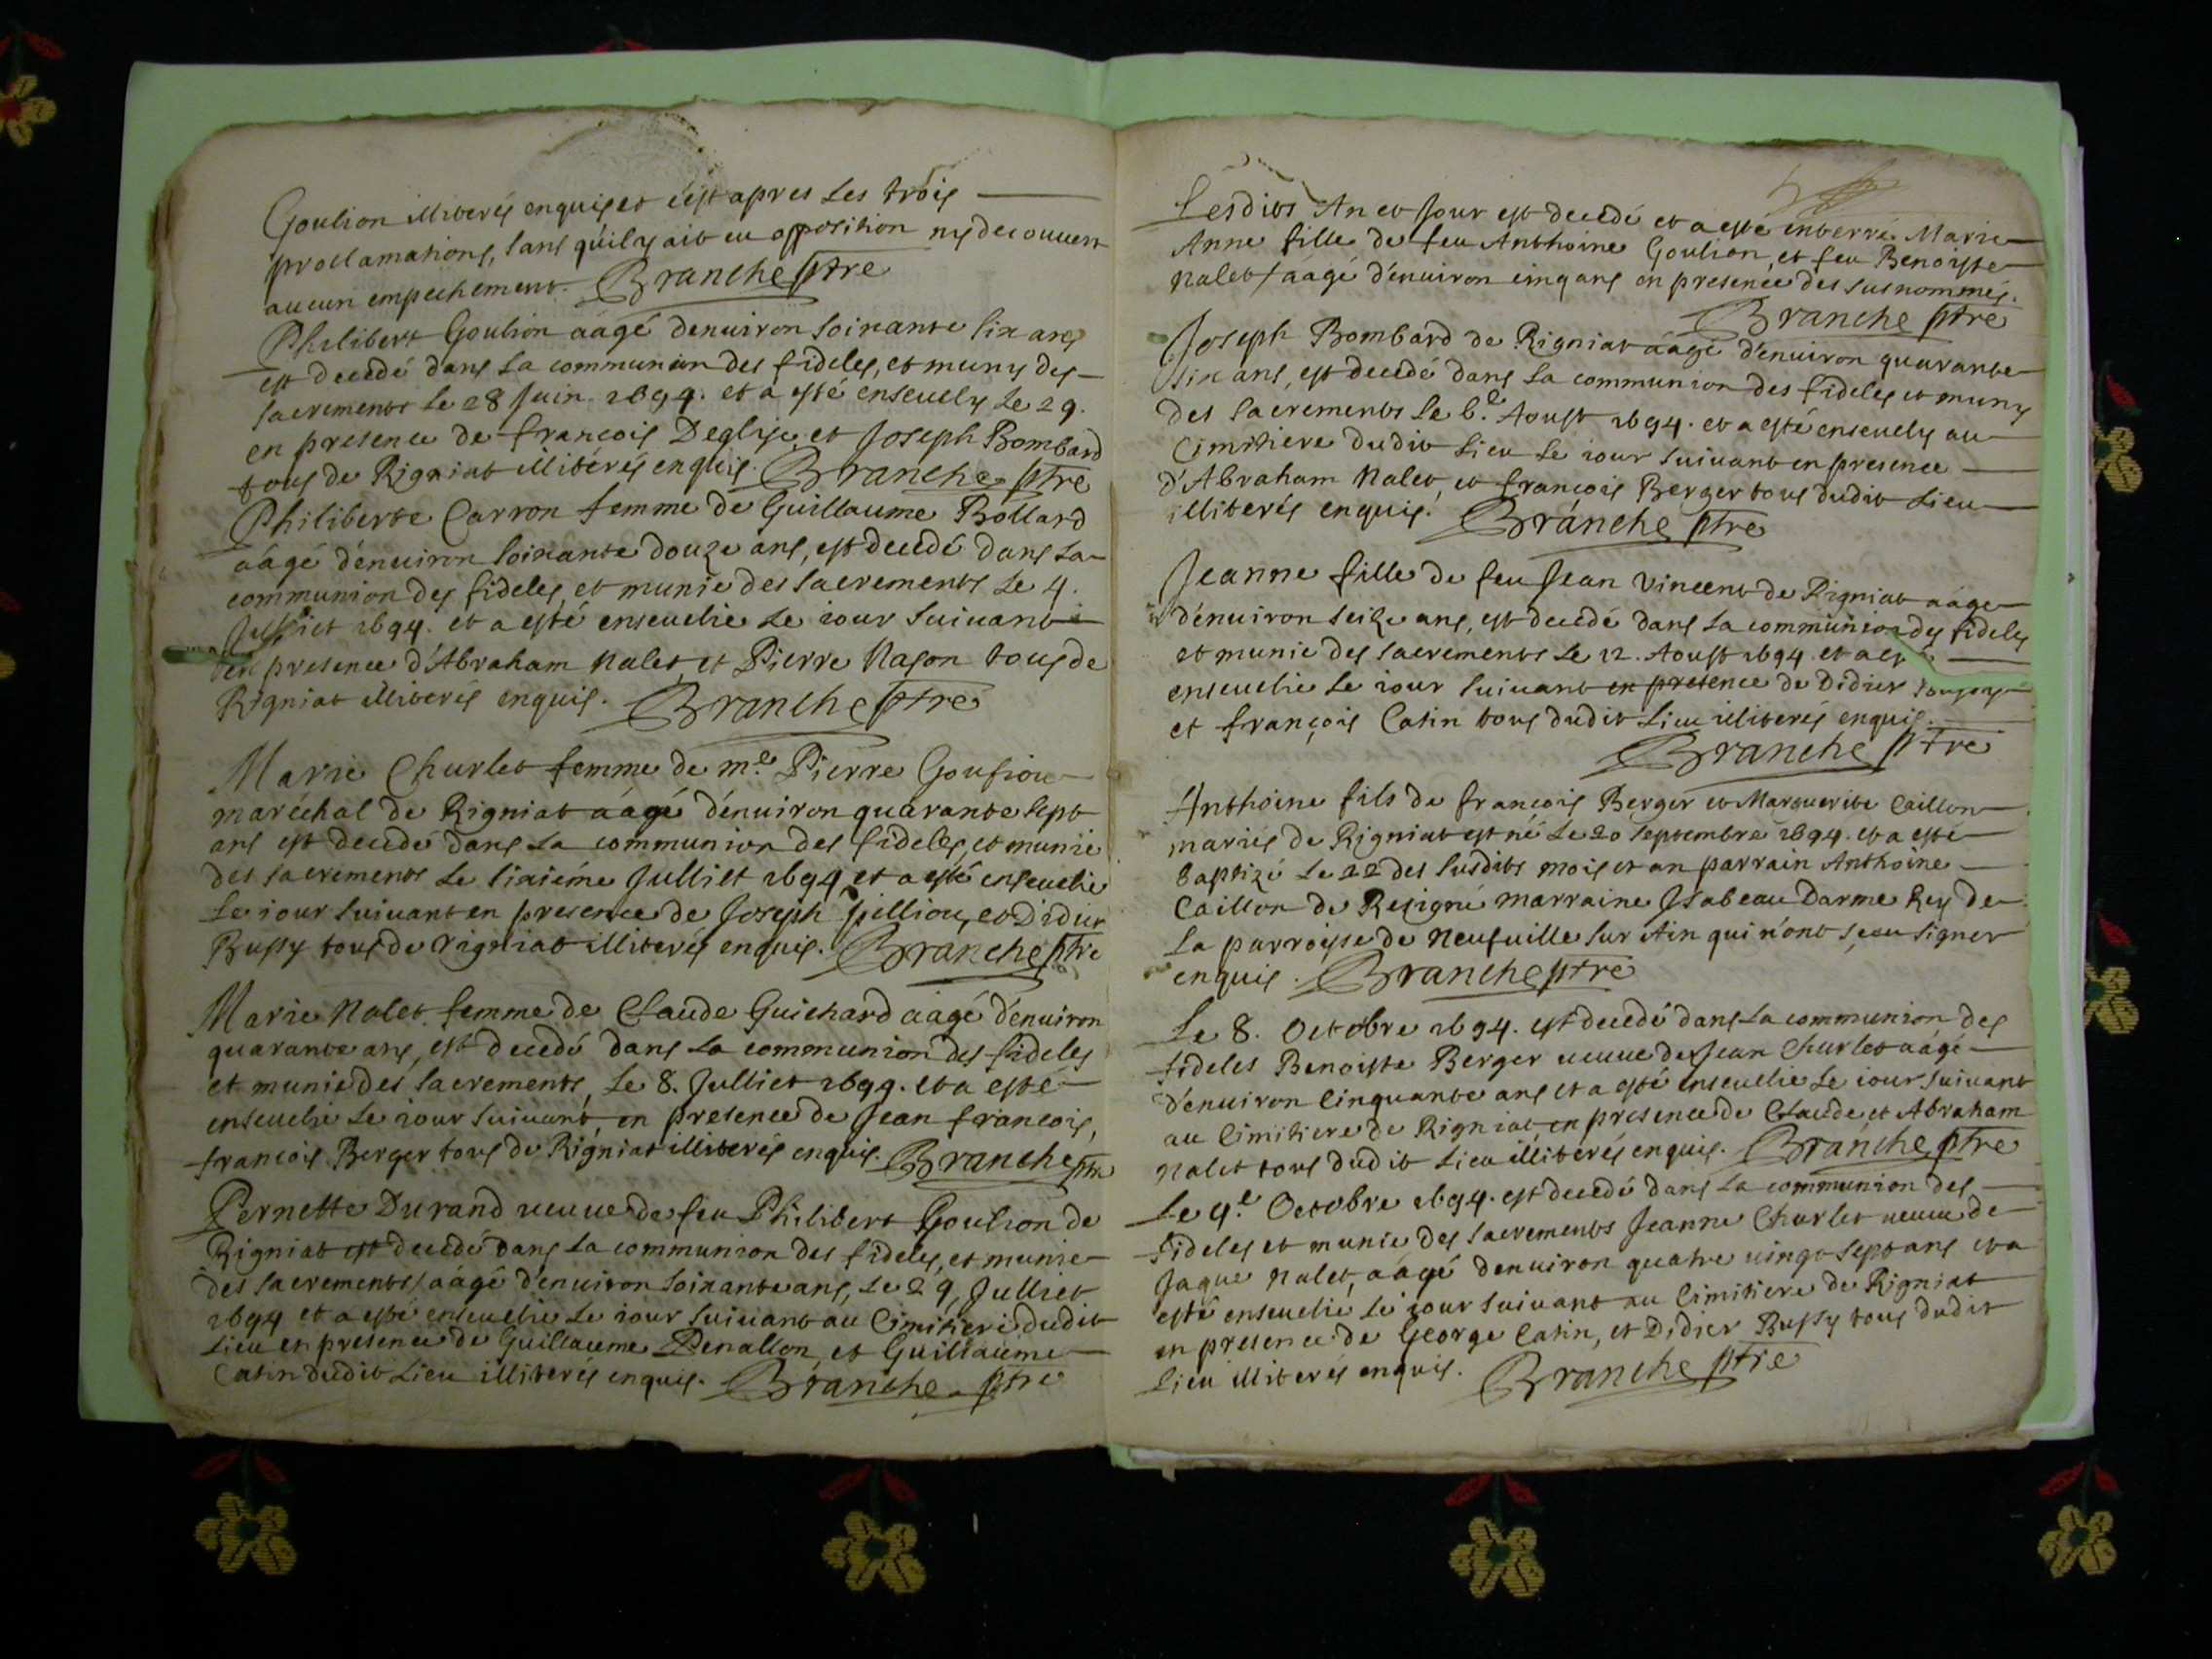 Goulion illiterés enquis et c'est apres les trois
proclamations, sans qu'il y ait eu opposition ny decouvert
aucun empechement. Branche ptre
Philibert Goulion aâgé d'enuiron soixante six ans
est decedé dans la communion des fideles, et muny des
sacrements le 28 Juin 1694. et a esté enseuely le 29.
en presence de francois Deglise et Joseph Bombard
tous de Rigniat illiterés enquis. Branche ptre
Philiberte Carron femme de Guillaume Bollard
aâgé d'enuiron soixante douze ans, est decedé dans la
communion des fideles, et munie des sacrements le 4.
Julliet 1694. et a esté enseuelie le iour suiuant
en presence d'Abraham Nalet, et Pierre Nason tous de
Rigniat illiterés enquis. Branche ptre
Marie Churlet femme de me. Pierre
maréchal de Rigniat aâgé d'enuiron quarante sept
ans est decedé dans la communion des fideles, et munie
des sacrements le sixiéme Julliet 1694 et a esté enseuelie
le iour suiuant en presence de Joseph et Didier
Bussy tous de rigniat illiterés enquis. Branche ptre
Marie Nalet femme de Claude Guichard aâgé d'enuiron
quarante ans, est decedé dans la communion des fideles
et munie des sacrements, le 8. Julliet 1694. et a esté
enseuelie le iour suiuant, en presence de Jean francois,
francois Berger tous de Rigniat illiterés enquis. Branche ptre
Pernette Durand ueuue de feu Philibert Goulion de
Rigniat est decedé dans la communion des fideles, et munie
des sacrements, aâgé d'enuiron soixante ans, le 29, Julliet
1694 et a esté enseuelie le iour suiuant au Cimitiere dudit
lieu en presence de Guillaume Penallon, et Guillaume
Catin dudit lieu illiterés enquis. Branche ptre
Lesdits An et Jour est decedé et a esté enterré Marie
Anne fille de feu Anthoine Goulion, et feu Benoiste
Nalet, aâgé d'enuiron cinq ans en presence des susnommés.
Branche ptre
Joseph Bombard de Rigniat aâgé d'enuiron quarante
six ans, est decedé dans la communion des fideles et muny
des sacrements le 6.e Aoust 1694. et a esté enseuely au
Cimitiere dudit lieu le iour suiuant en presence
d'Abraham Nalet, et francois Berger tous dudit lieu
illiterés enquis. Branche ptre
Jeanne fille de feu Jean Vincent de Rigniat aâgé
d'enuiron seize ans, est decedé dans la communion des fideles
et munie des sacrements le 12. Aoust 1694. et a
enseuelie le iour suiuant en presence de Didier
et françois Catin tous dudit lieu illiterés enquis.
Branche ptre
Anthoine fils de françois Berger et Marguerite Caillon
mariés de Rigniat est né le 20 septembre 1694. et a esté
baptizé le 22 des susdits mois et an parrain Anthoine
Caillon de Resigné marraine Isabeau Darme Rey de
la parroisse de Neufuille sur Ain qui n'ont sceu signer
enquis. Branche ptre
Le 8. Octobre 1694. est decedé dans la communion des
fideles Benoiste Berger ueuue de Jean Churlet aâgé
d'enuiron Cinquante ans et a esté enseuelie le iour suiuant
au Cimitiere de Rigniat en presence de Claude et Abraham
Nalet tous dudit lieu illiterés enquis. Branche ptre
Le 9.e Octobre 1694. est decedé dans la communion des
fideles et munie des sacrements Jeanne Churlet ueuue de
Jaque Nalet, aâgé d'enuiron quatre uingt sept ans et a
esté enseuelie le iour suiuant au Cimitiere de Rigniat
en presence de George Catin, et Didier Bussy tous dudit
lieu illiterés enquis. Branche ptre